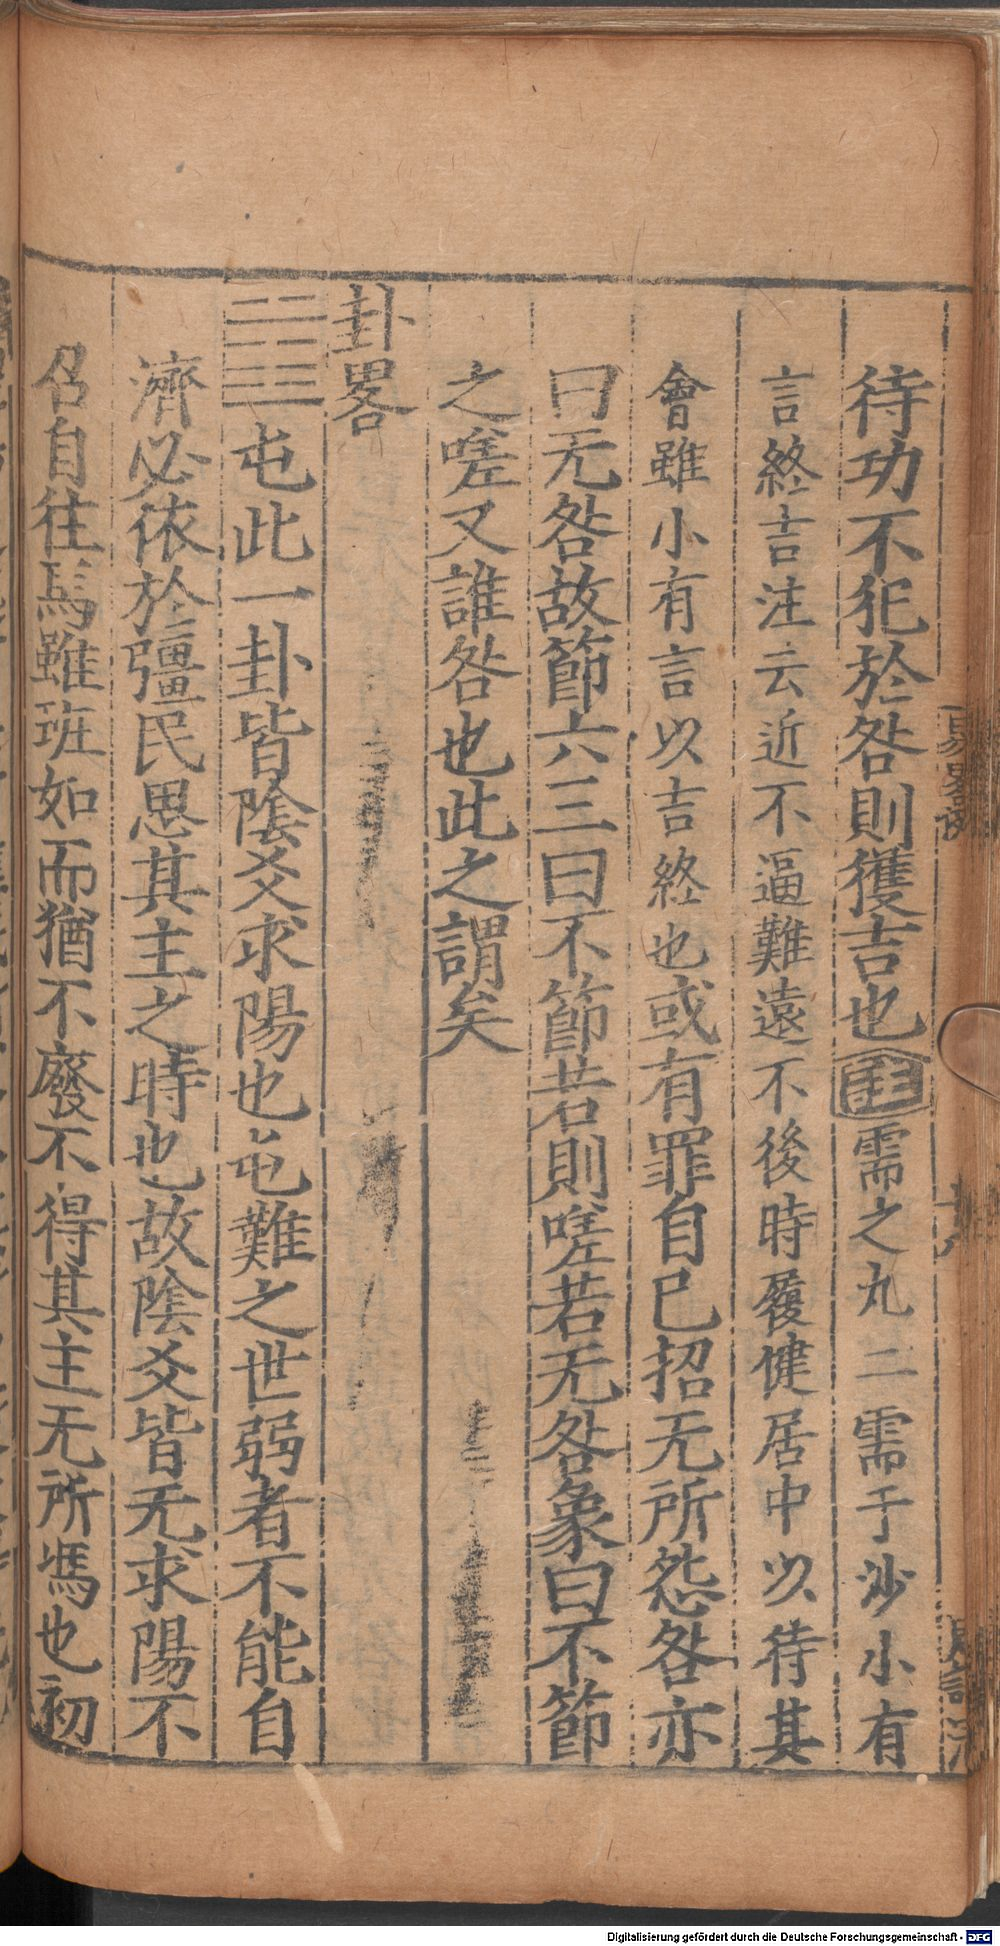 待功不犯於咎則獲吉也註需之九二需于沙小有
言終吉注云近不逼難遠不後時履健居中以待其
會雖小有言以吉終也或有罪自已招无所怨咎亦
曰无咎故節六三曰不節若則嗟若无咎象曰不節
之嗟又誰咎也此之謂矣
卦畧
䷂屯此一卦皆陰爻求陽也屯難之世弱者不能自
濟必依於彊民思其主之時也故陰爻皆无求陽不
召自往馬雖班如而猶不廢不得其主无所馮也初
Digitalisierung gefördert durch die Deutsche Forschungsgemeinschaft - DFG